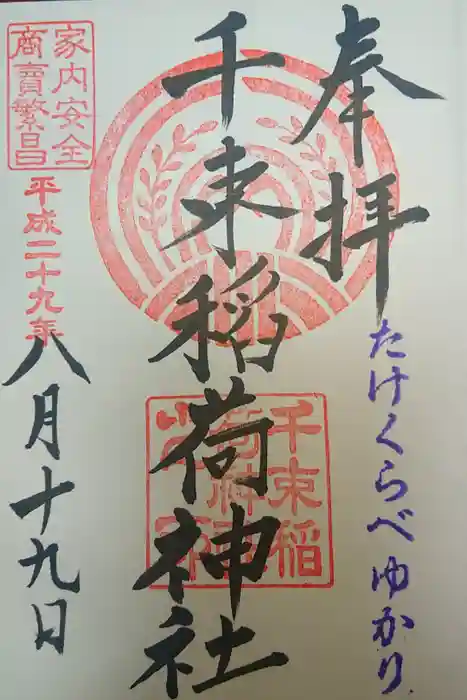 奉拝
たけくらべ ゆかり
千束稲荷神社
千束稲
荷神社
家内安全
商賣繁昌
平成二十九年
八月十九日